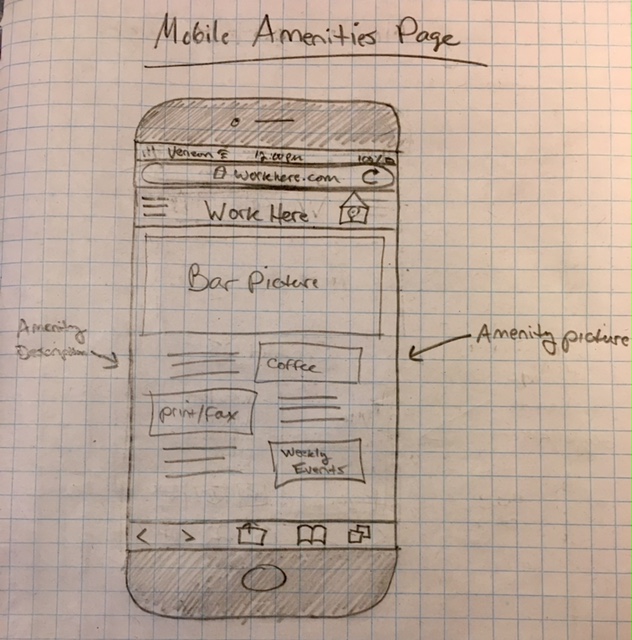 Mobile Amenities Page
Verizon 12:00pm 100%
workhere.com
Work Here
Bar Picture
Amenity Description
Amenity picture
Coffee
print/fax
Weekly
Events